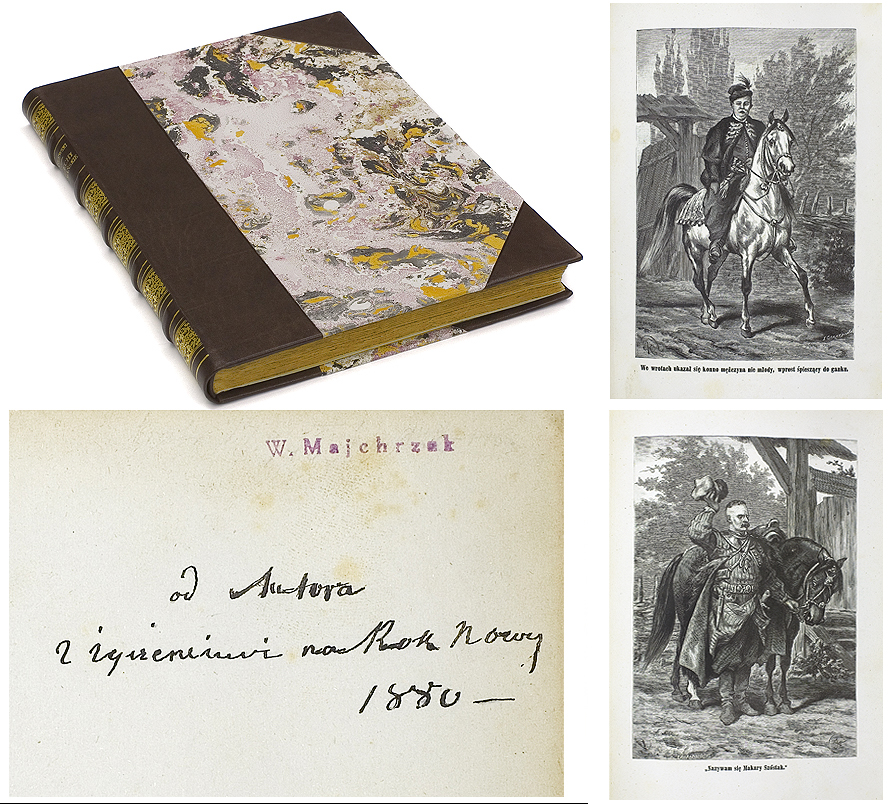 We wrotach ukazał się konno mężczyzna nie młody, wprost śpieszący do ganku.
W. Majchrzak
od Autora
z życzeniami na Rok Nowy
1880 —
„Nazywam się Makary Szóstak."